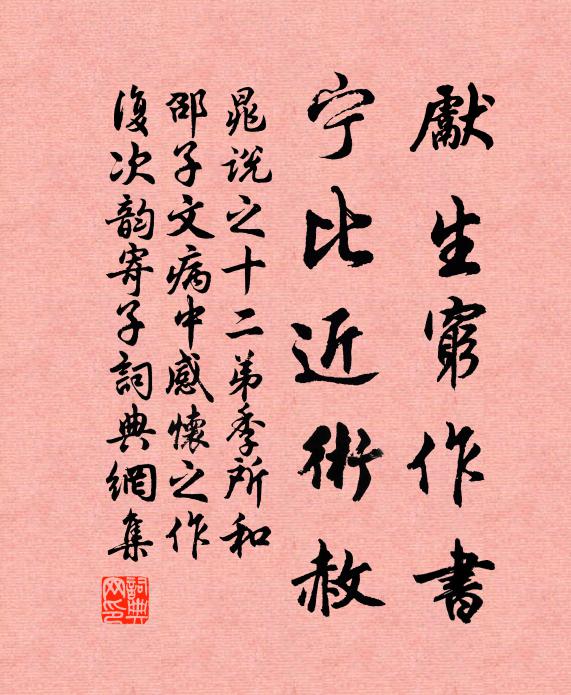 獻生窮作書
宁比近術赦
晁說之十二弟季所和
邵子文病中感懷之作
復次韵寄子詞典網集
詞典網印